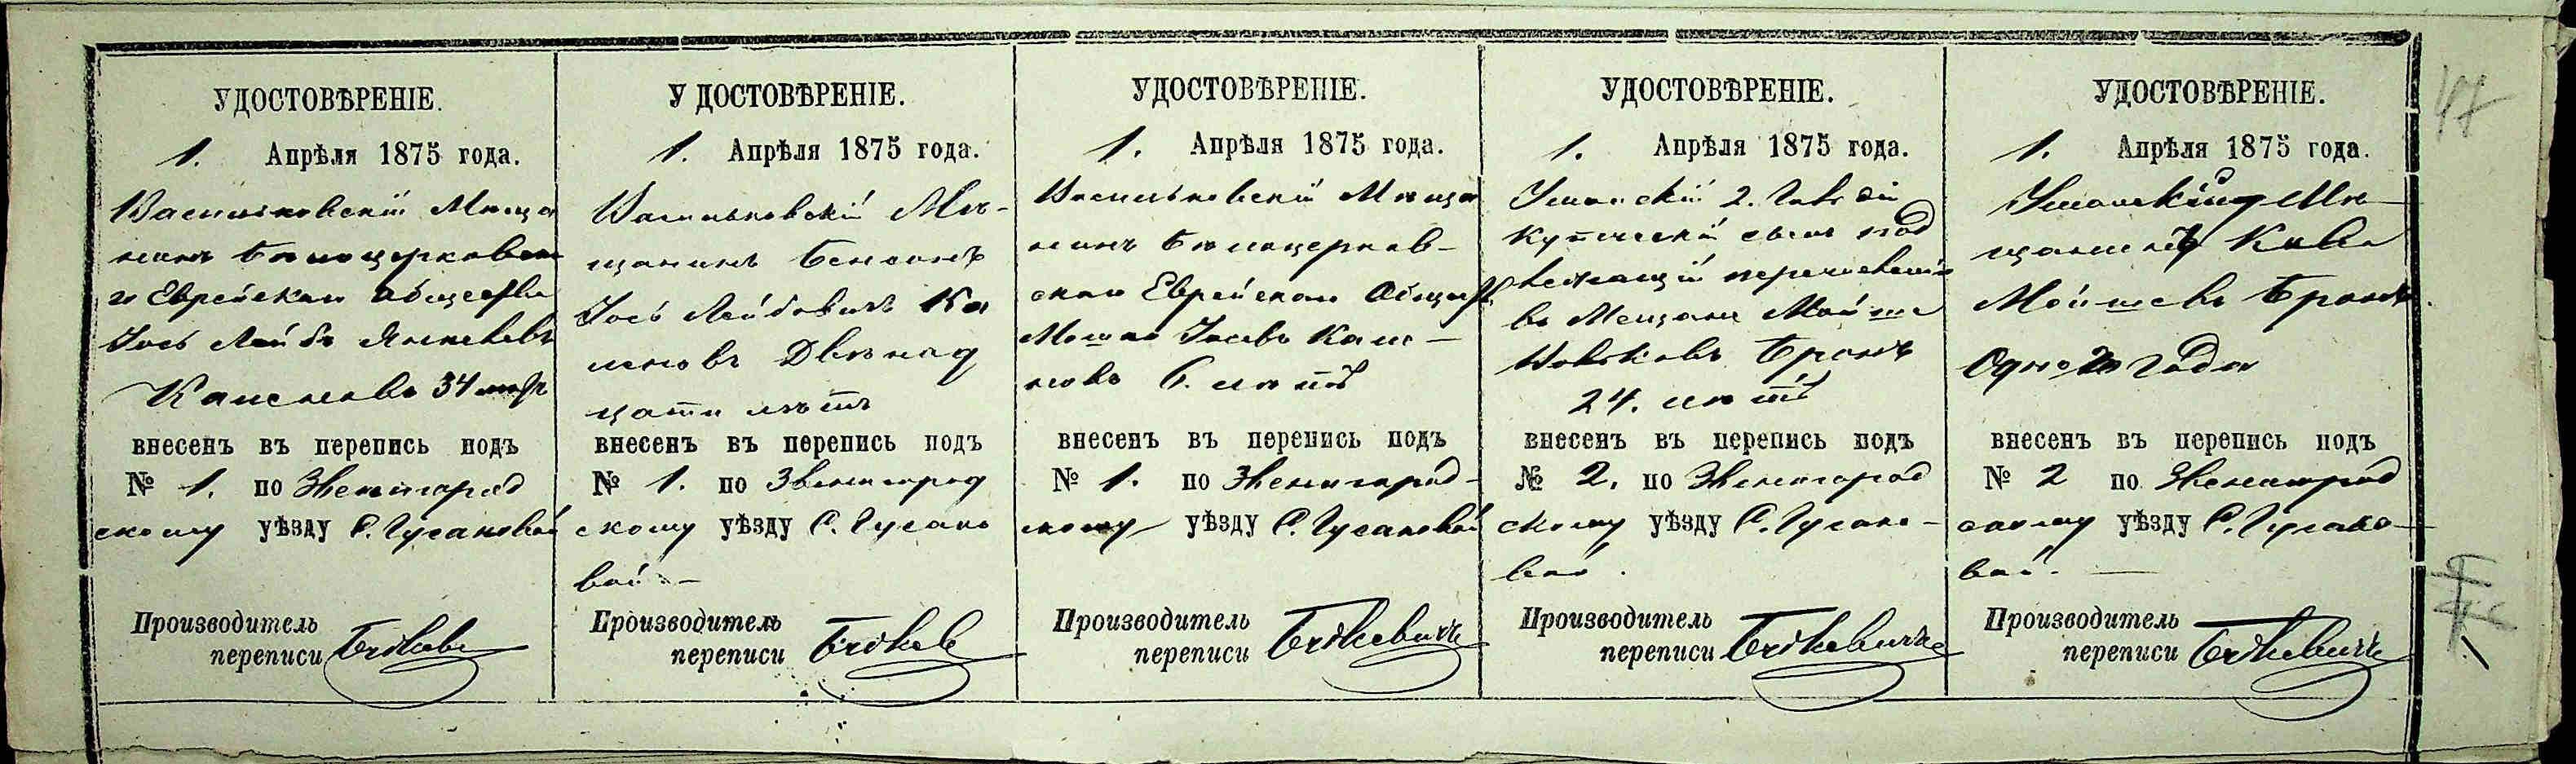 УДОСТОВѢРЕНІЕ.
1. Апрѣля 1875 года.
Васильковскій Мѣща
нинъ Бѣлоцерковска
го Еврейскаго общества
Іось Лейба Янкелевъ
Каменевъ 34 лѣтъ
внесенъ въ перепись подъ
№ 1. по Звенигород
скому уѣзду С. Гусаковой
Производитель
переписи

УДОСТОВѢРЕНІЕ.
1. Апрѣля 1875 года.
Васильковскій Мѣ-
щанинъ Бенціонъ
Іось Лейбовичъ Ка
меновъ Двѣнад
цати лѣтъ
внесенъ въ перепись подъ
№ 1. по Звенигород
скому уѣзду С. Гусако
вой -
Производитель
переписи

УДОСТОВѢРЕНІЕ.
1. Апрѣля 1875 года.
Васильковскій Мѣща
нинъ Бѣлоцерков-
скаго Еврейскаго Общест
Мошко Іосевъ Каме-
новъ 6. лѣтъ
внесенъ въ перепись подъ
№ 1. по Звенигород-
скому уѣзду С. Гусаковой
Производитель
переписи

УДОСТОВѢРЕНІЕ.
1. Апрѣля 1875 года.
Уманскій 2. Гильдіи
Купеческій сынъ под
лежащій перечисленію
въ Мещане Мойше
Вовковъ Бронъ
24. лѣтъ
внесенъ въ перепись подъ
№ 2. по Звенигород
скому уѣзду С. Гусако-
вой.
Производитель
переписи

УДОСТОВѢРЕНІЕ.
1. Апрѣля 1875 года.
Уманскій Мѣ-
щанинъ
Мойшевъ Бронъ.
Одного года
внесенъ въ перепись подъ
№ 2 по Звенигород
скому уѣзду С. Гусако-
вой. -
Производитель
переписи
47